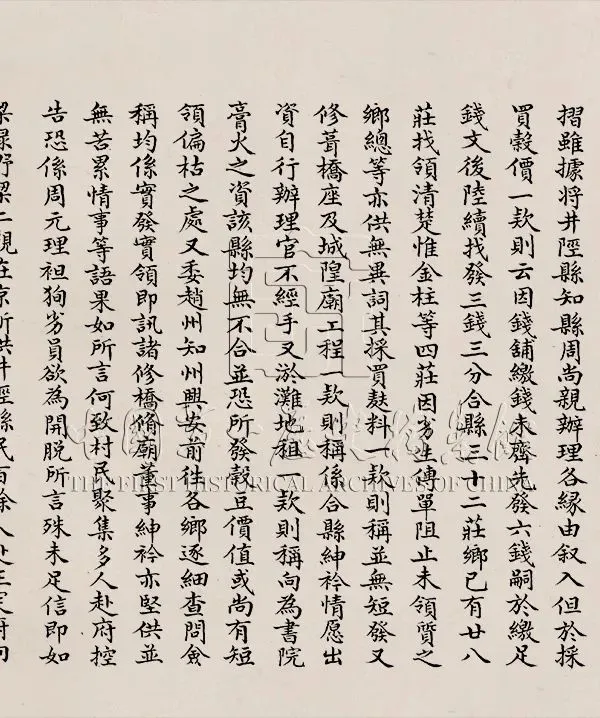 摺雖據將井陘縣知縣周尚親辦理各緣由叙入但於採
買穀價一款則云因錢舖繳錢未齊先發六錢嗣於繳足
錢文後陸續找發三錢三分合縣三十二莊鄉已有廿八
莊找領清楚惟金柱等四莊因劣生傳單阻止未領質之
鄉總等亦供無異詞其採買麩料一款則稱並無短發又
修葺橋座及城隍廟工程一款則稱係合縣紳衿情愿出
資自行辦理官不經手又淤灘地租一款則稱向為書院
膏火之資該縣均無不合並恐所發穀豆價值或尚有短
領偏枯之處又委趙州知州興安前往各鄉逐細查問僉
稱均係實發實領即訊諸修橋脩廟董事紳衿亦堅供並
無苦累情事等語果如所言何致村民聚集多人赴府控
告恐係周元理袒狥劣員欲為開脫所言殊未足信即如
中國第一歷史檔案館
THE FIRST HISTORICAL ARCHIVES OF CHINA